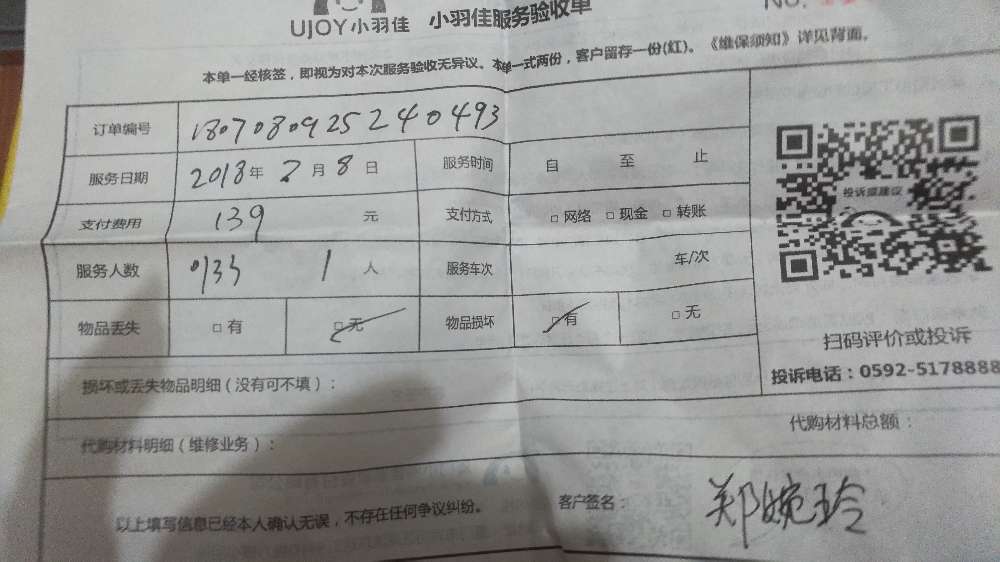 UJOY小羽佳 小羽佳服务验收单
No.
本单一经核签，即视为对本次服务验收无异议、本单一式两份，客户留存一份(红)。《维保须知》详见背面。
订单编号 1807080925240493
服务日期 2018年 2月 8日 服务时间 自 至 止
支付费用 139 元 支付方式 □ 网络 □ 现金 □ 转账
服务人数 1 人 服务车次 车/次
物品丢失 □ 有 □ 无 物品损坏 □ 有 □ 无
投诉或建议
扫码评价或投诉
投诉电话：0592-5178888
损坏或丢失物品明细（没有可不填）：
代购材料明细（维修业务）： 代购材料总额：
以上填写信息已经本人确认无误，不存在任何争议纠纷。 客户签名： 郑婉玲